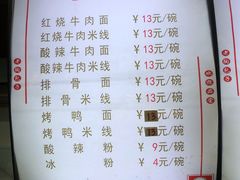 红烧牛肉面 ¥13元/碗
红烧牛肉米线 ¥13元/碗
酸辣牛肉面 ¥13元/碗
酸辣牛肉米线 ¥13元/碗
排骨面 ¥13元/碗
排骨米线 ¥13元/碗
烤鸭面 ¥13元/碗
烤鸭米线 ¥13元/碗
酸辣粉 ¥9元/碗
冰粉 ¥4元/碗